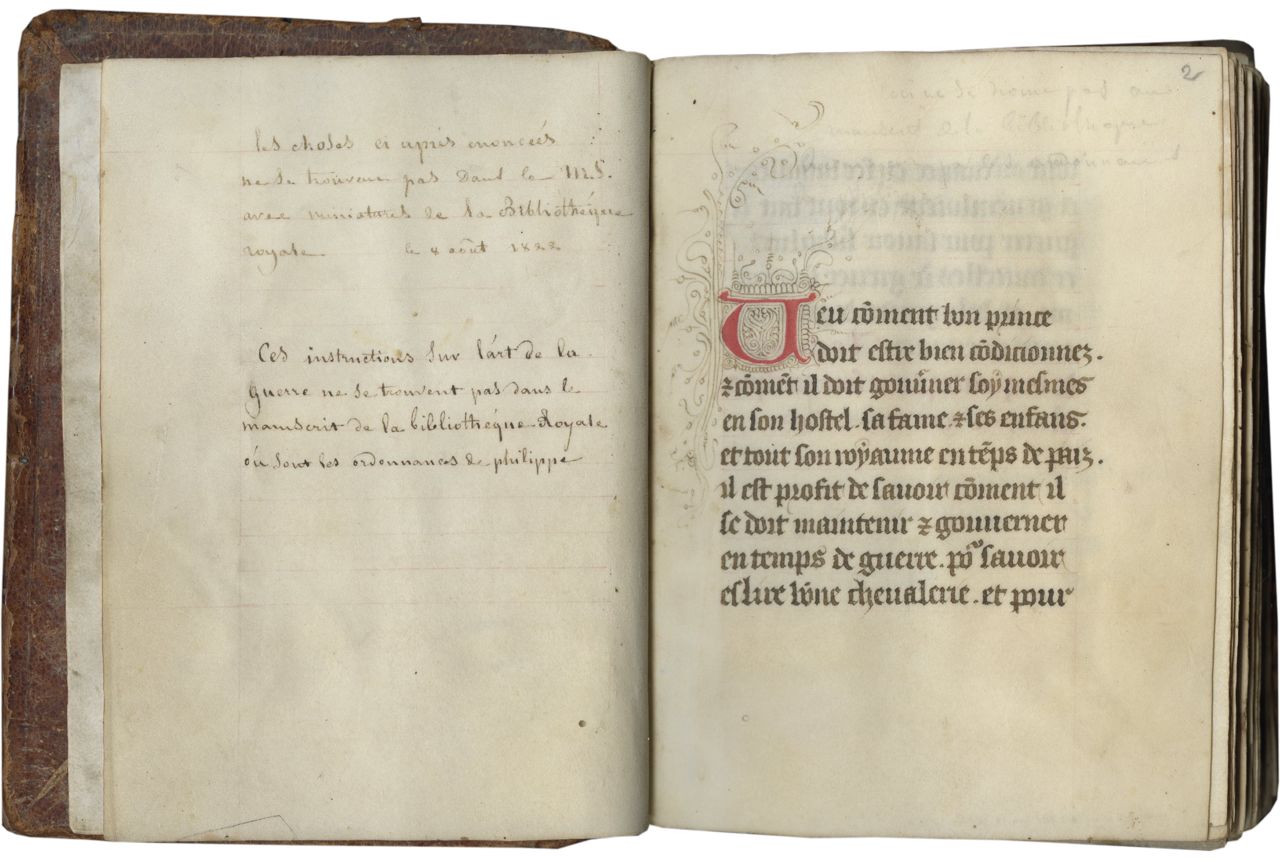 les choses ci après enoncées
ne se trouvent pas dans le MS.
avec miniatures de la Bibliothéque
royale. le 8 août 1822
Ces instructions sur l'art de la
guerre ne se trouvent pas dans le
manuscrit de la bibliothéque Royale
où sont les ordonnances de philippe
2
ceci ne se trouve pas au
manuscrit de la bibliothéque
Ueu cōment bon prince
doit estre bien cōdicionnez.
⁊ cōmēt il doit gouūner soy mesmes
en son hostel. sa fame. ⁊ ses enfans.
et tout son royaume en tēps de paiz.
il est profit de sauoir cōment il
se doit maintenir ⁊ gouuerner
en temps de guerre. po᷑ sauoir
eslire bōne cheualerie. et pour